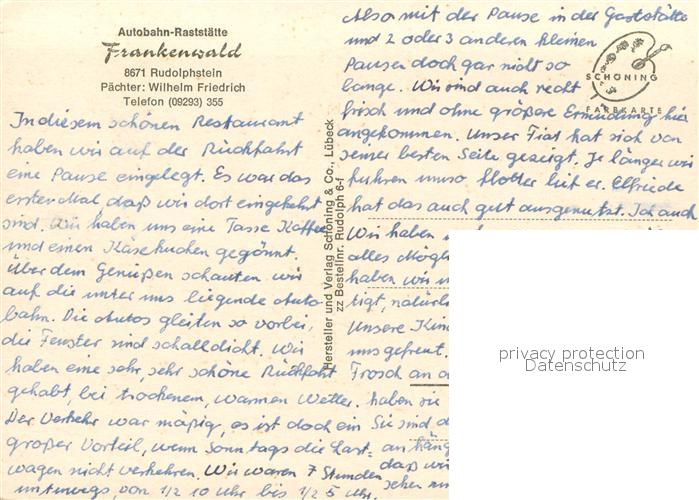 Autobahn-Raststätte
Frankenwald
8671 Rudolphstein
Pächter: Wilhelm Friedrich
Telefon (09293) 355
In diesem schönen Restaurant
haben wir auf der Rückfahrt
eine Pause eingelegt. Es war das
erste Mal daß wir dort eingekehrt
sind. Wir haben uns eine Tasse Kaffee
und einen Käsekuchen gegönnt.
Über dem Genüßen schauten wir
auf die unter uns liegende Auto-
bahn. Die Autos gleiten so vorbei,
die Fenster sind schalldicht. Wir
haben eine sehr, sehr schöne Rückfahrt
gehabt, bei trockenem, warmen Wetter.
Der Verkehr war mäßig, es ist doch ein
großer Vorteil, wenn Sonntags die Last-
wagen nicht verkehren. Wir waren 7 Stunden
unterwegs, von 1/2 10 Uhr bis 1/2 5 Uhr.
Hersteller und Verlag Schöning & Co., Lübeck
zz Bestellnr. Rudolph 6-f
Also mit der Pause in der Gaststätte
und 2 oder 3 anderen kleinen
Pausen doch gar nicht so
lange. Wir sind auch recht
frisch und ohne größere Ermüdung hier
angekommen. Unser Fiat hat sich von
seiner besten Seite gezeigt. Je länger wir
fuhren umso flotter lief er. Elfriede
hat das auch gut ausgenutzt. Ich auch
Wir haben
alles Mögl
haben wir
tigt, natürli
Unsere Kin
uns gefreut.
Frosch an
haben sie
Sie sind d
an häng
daß wir
sehen
SCHÖNING
FARBKARTE
privacy protection
Datenschutz